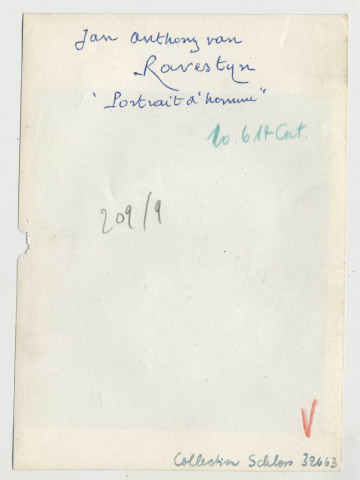 Jan Anthony van
Ravestyn
"Portrait d'homme"
No 614 Cat.
209/9
V
Collection Schloss 32663